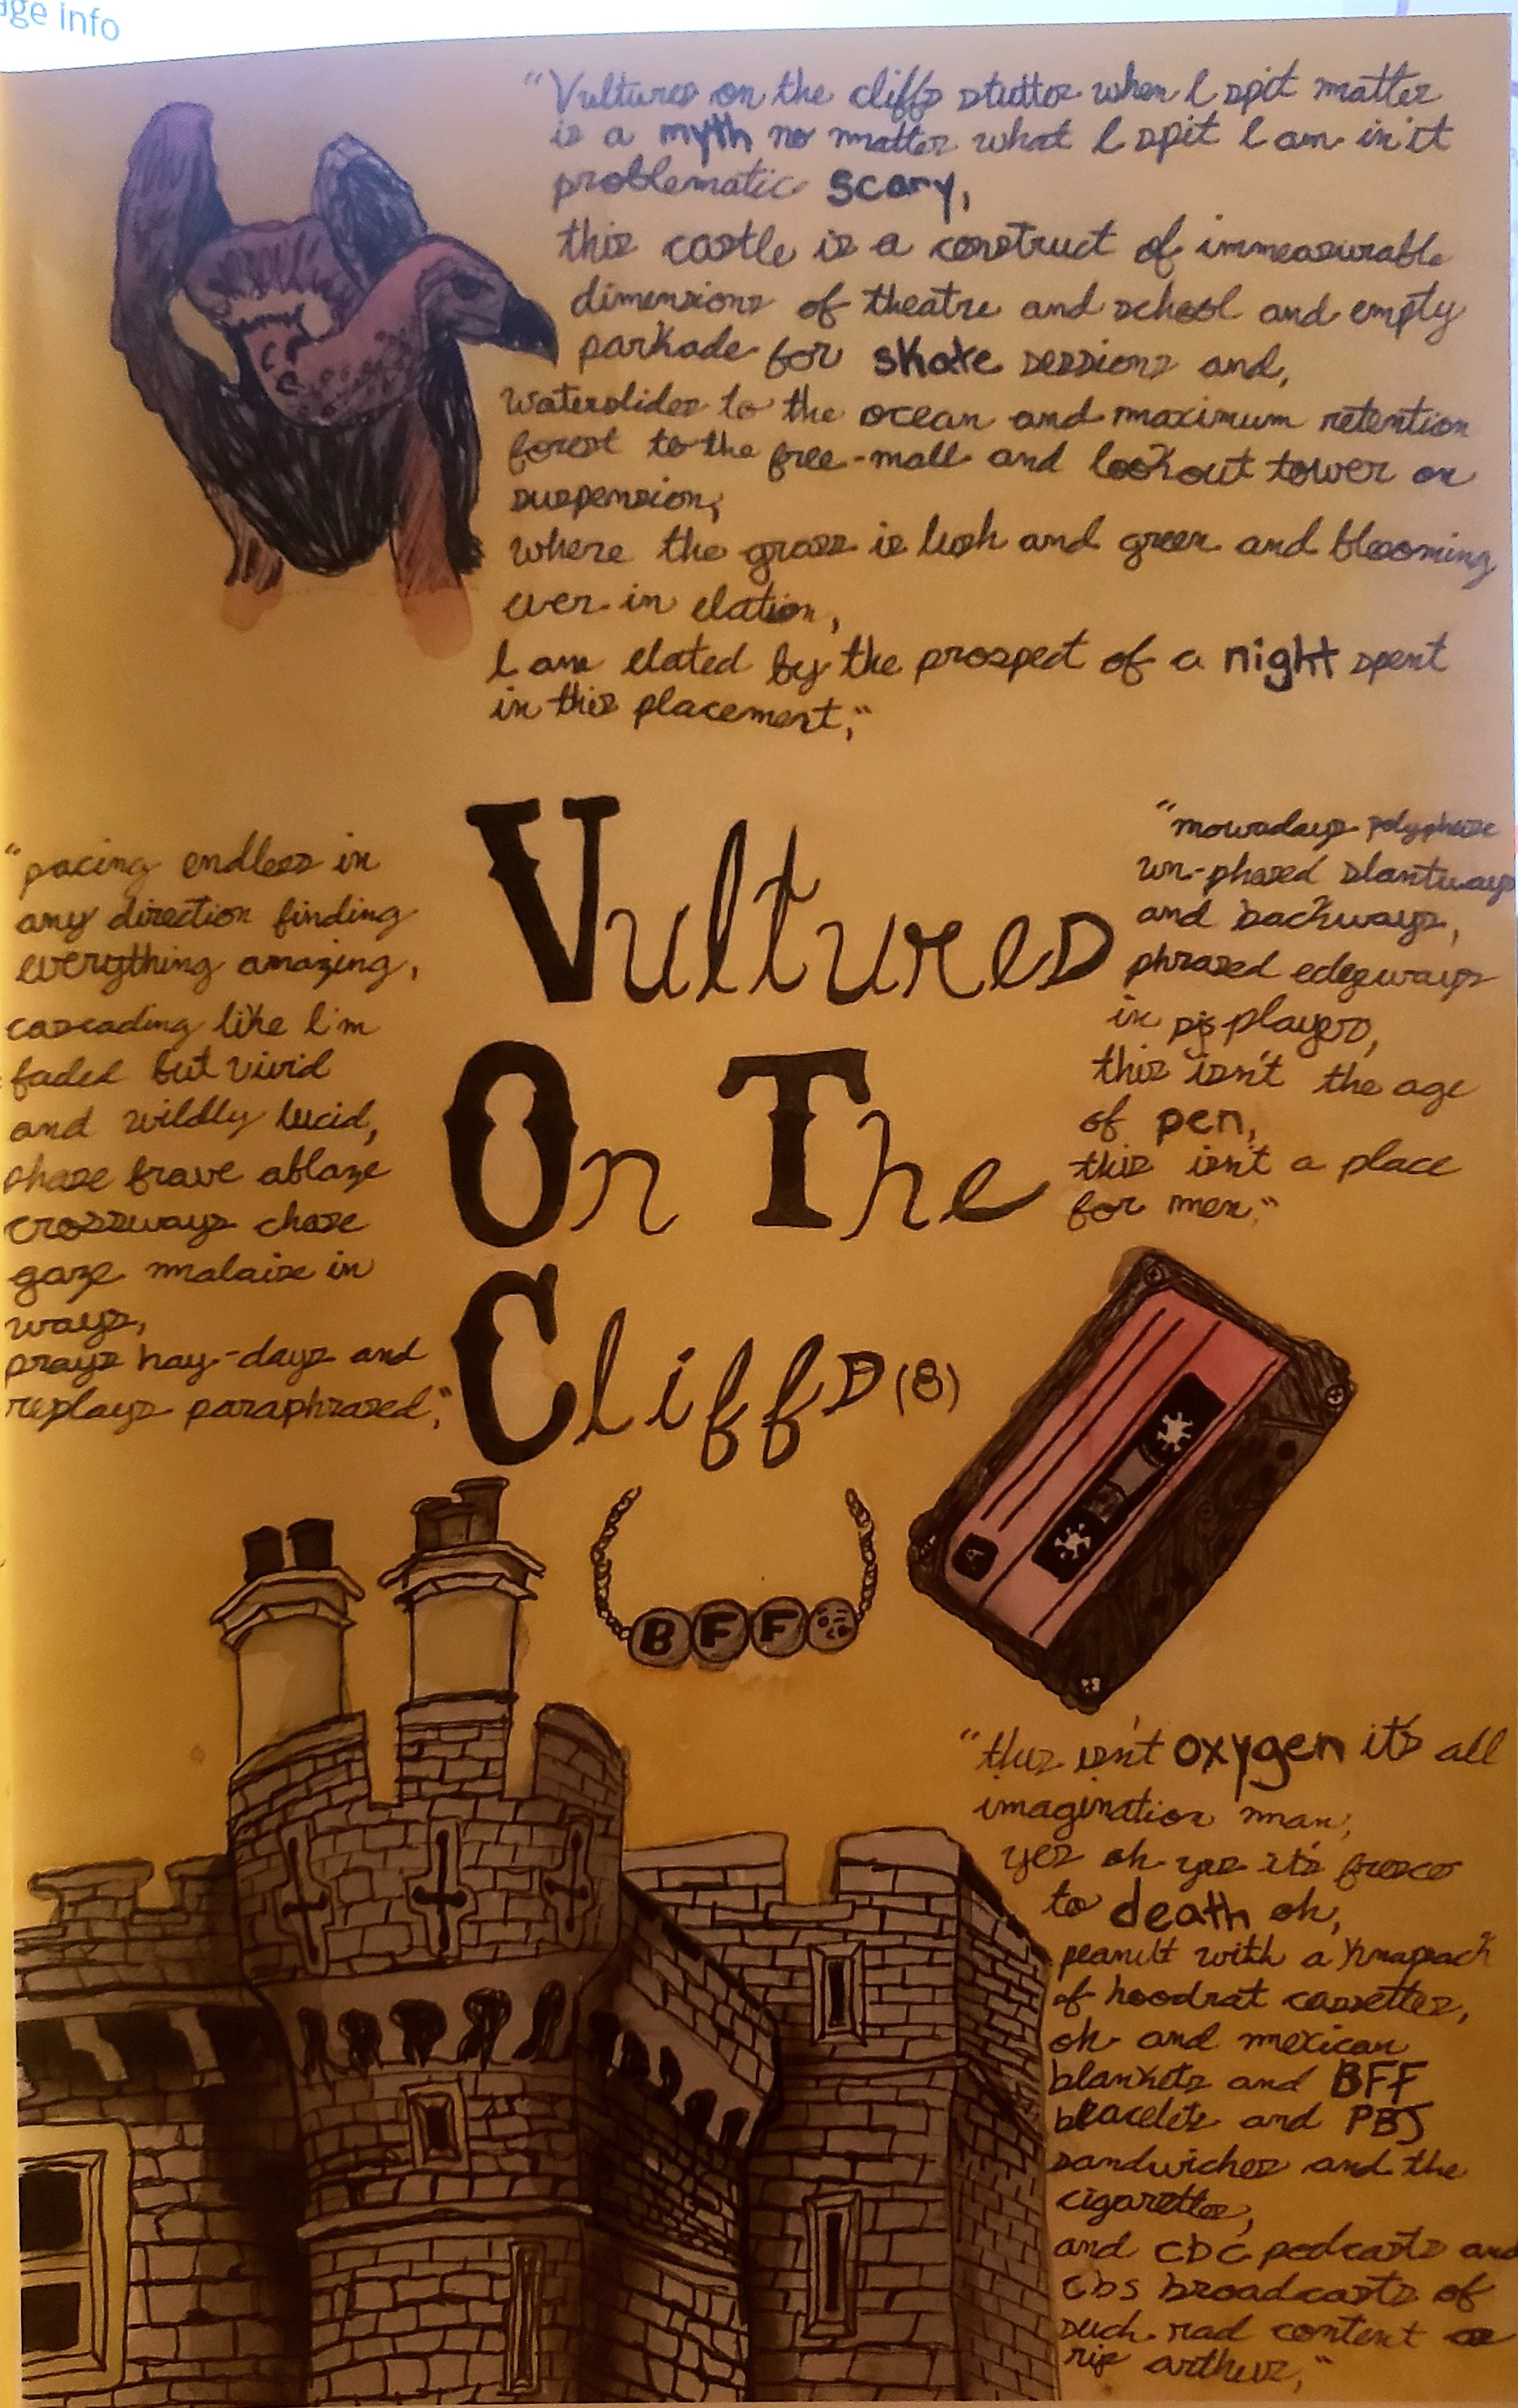 age info
"Vultures on the cliffs stutter when I spit matter
is a myth no matter what I spit I am in it
problematic scary,
this castle is a construct of immeasurable
dimensions of theatre and school and empty
parkade for skate sessions and,
waterslides to the ocean and maximum retention
forest to the free-mall and lookout tower on
suspension,
where the grass is lush and green and blooming
ever in elation,
I am elated by the prospect of a night spent
in this placement,"
"pacing endless in
any direction finding
everything amazing,
cascading like I'm
faded but vivid
and wildly lucid,
phase brave ablaze
crossways chase
gaze malaise in
ways,
prays hay-days and
replays paraphrased,"
Vultures
On The
Cliffs (8)
"nowadays polyphase
un-phased slantways
and backways,
phrased edgeways
in players,
this isn't the age
of pen,
this isn't a place
for men."
A
BFF
"this isn't oxygen it's all
imagination man,
yes oh yes it's fresco
to death oh,
peanut with a knapsack
of hoodrat cassettes,
oh and mexican
blankets and BFF
bracelets and PBJ
sandwiches and the
cigarettes,
and cbc podcasts and
cbs broadcasts of
such rad content
rip arthur,"